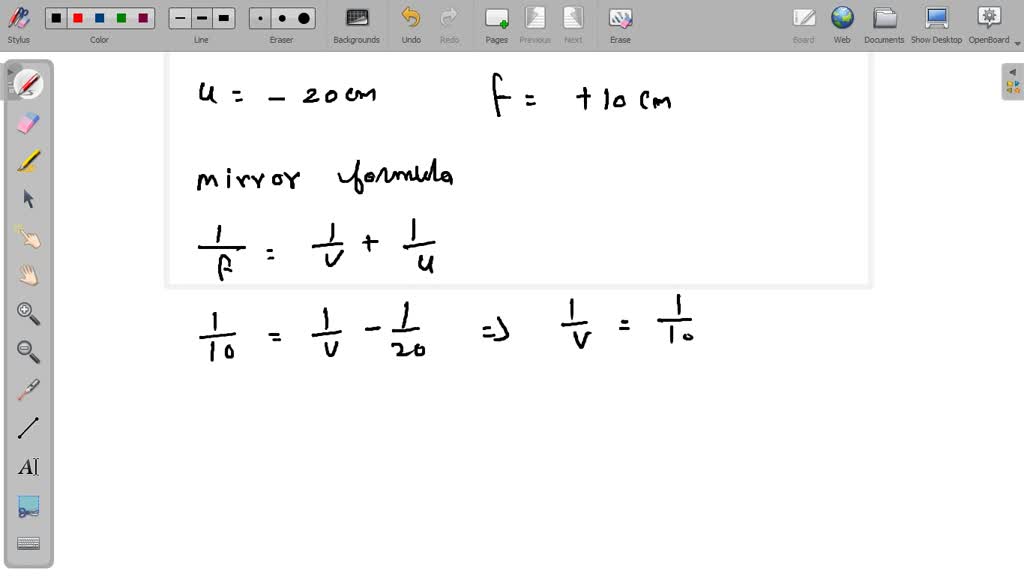 Stylus Color Line Eraser Backgrounds Undo Redo Pages Previous Next Erase Board Web Documents Show Desktop OpenBoard
u = - 20 cm f = + 10 cm
mirror formula
1/f = 1/v + 1/u
1/10 = 1/v - 1/20 => 1/v = 1/10
A